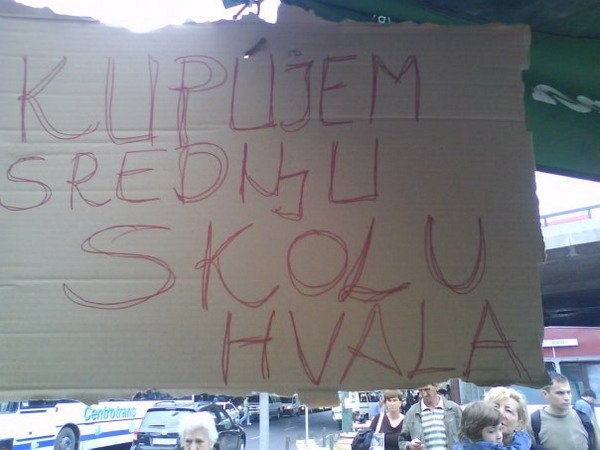 KUPUJEM
SREDNjU
SKOLU
HVALA
Centrotrans